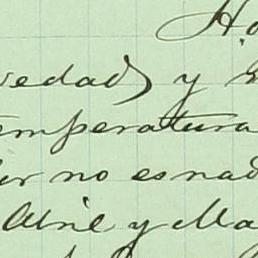 Ho
vedad y
temperatura
er no es nad
Abril y Ma